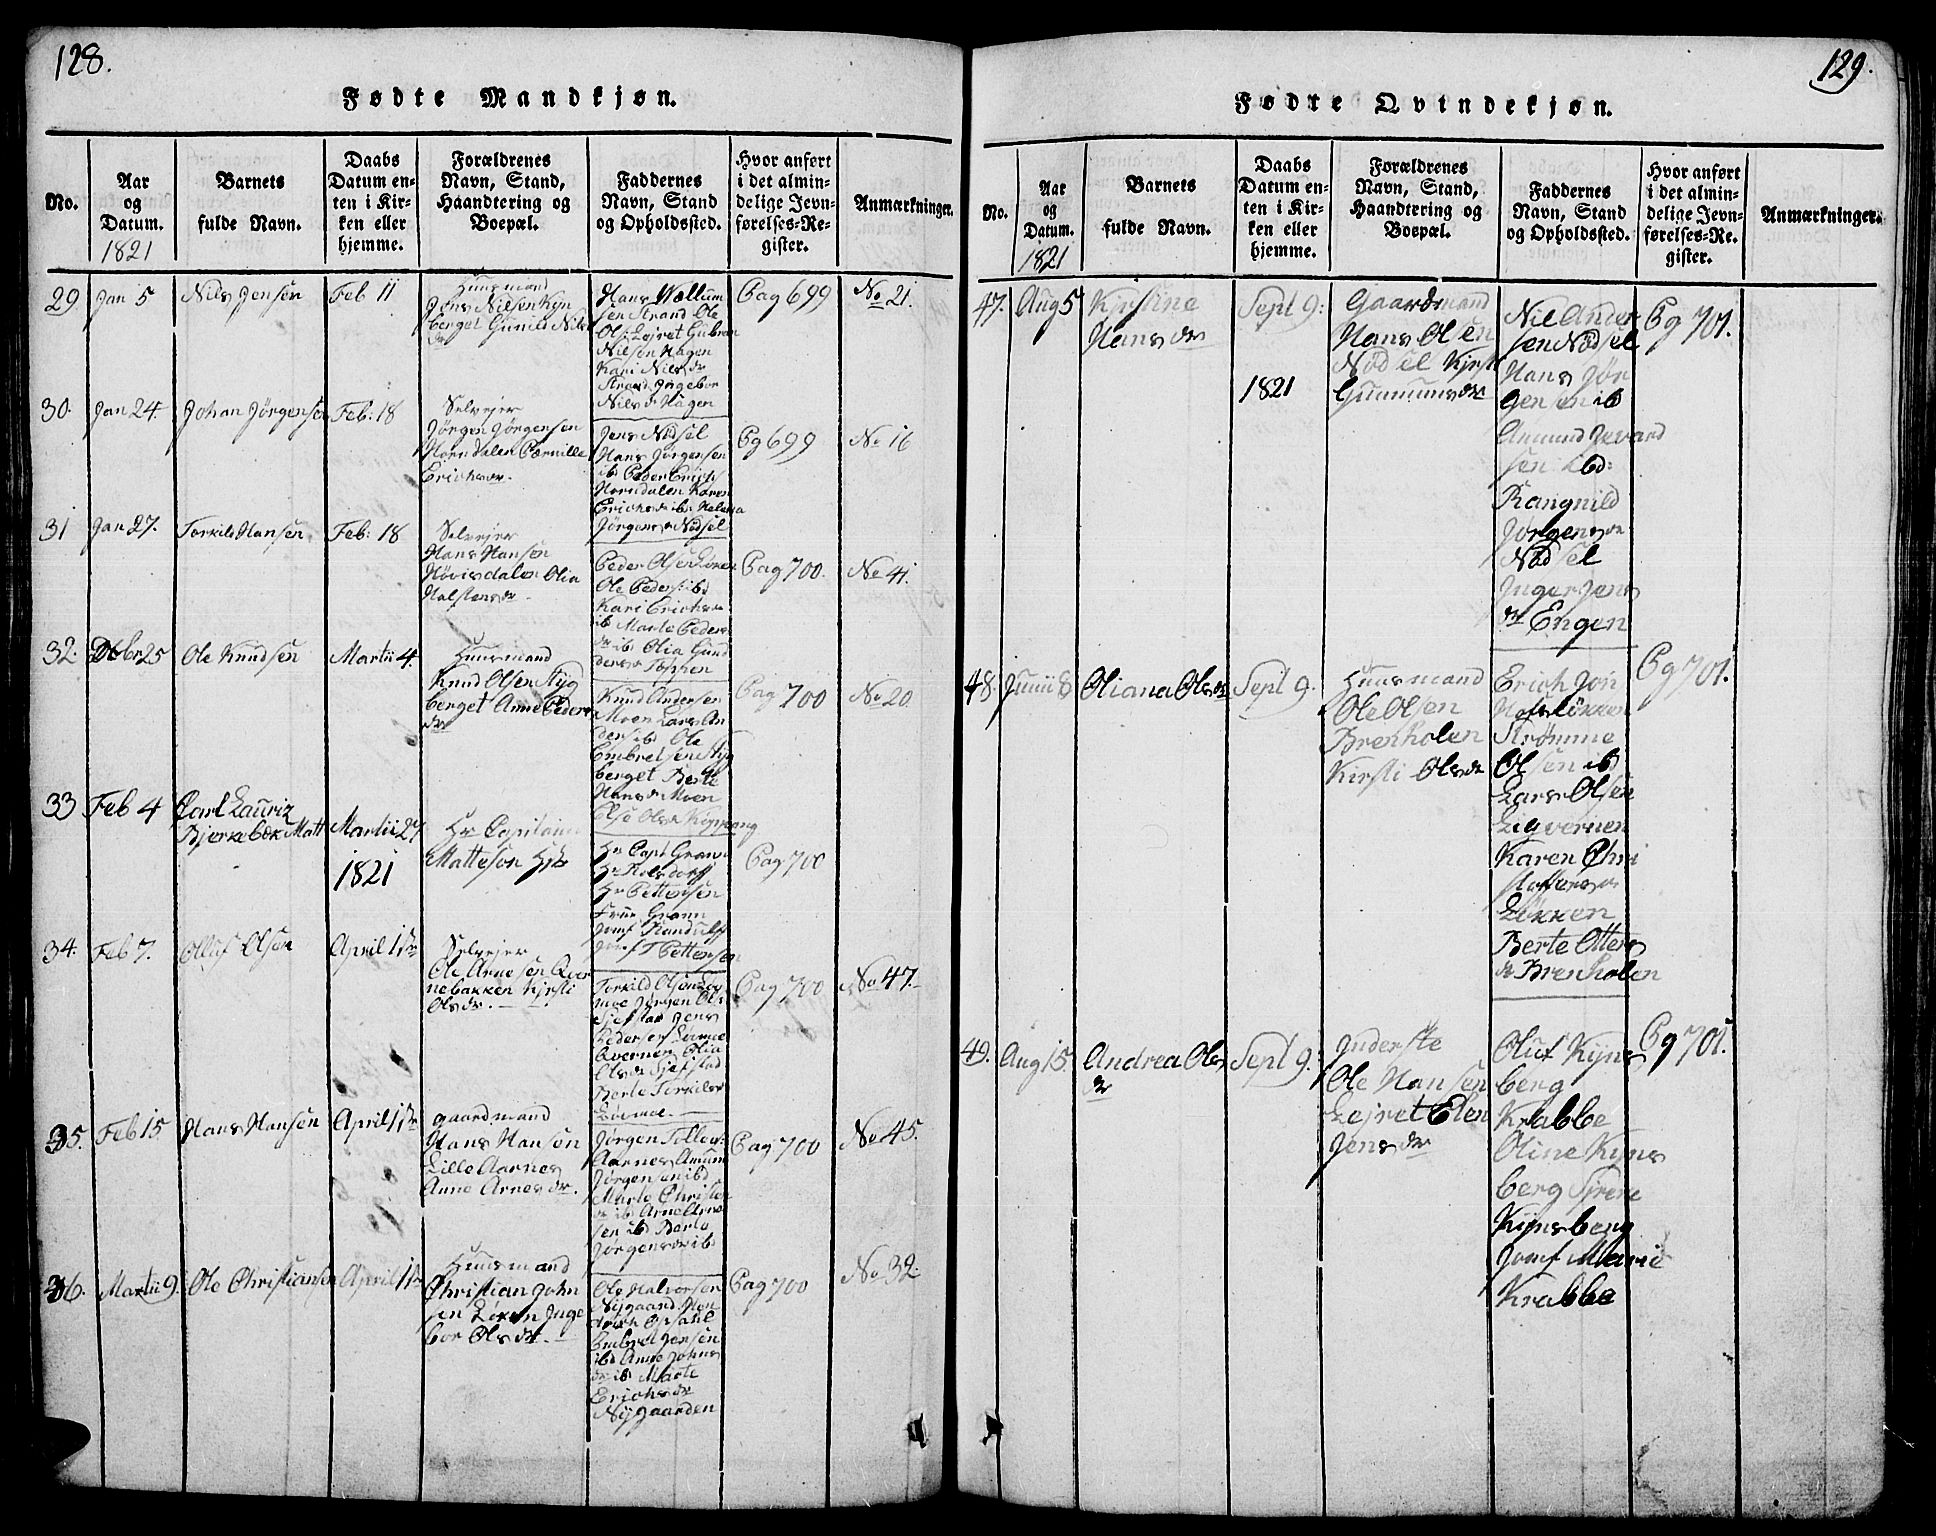 128.
Fødte Mandkjøn.
No.
Aar
og
Datum.
1821
Barnets
fulde Navn.
Daabs
Datum en-
ten i Kir-
ken eller
hjemme.
Forældrenes
Navn, Stand,
Haandtering og
Boepæl.
Faddernes
Navn, Stand
og Opholdssted.
Hvor anført
i det almin-
delige Jevn-
førelses-Re-
gister.
Anmærkninger.
29
Jan 5
Nils Jensen
Feb 11
Huusmand
Jens Nielsen Kyn
berget Gunild Nils
dr
Hans Wællum
sen Strand Ole
Ols: Lejret Gulbran
Nilsen Hagen
Kari Nilsdr
Strand Ingebor
Nilsdr Hagen
Pag 699
No 21.
30.
Jan 24
Johan Jörgensen
Feb: 18
Selvejer
Jörgen Jörgensen
Horndalen Pernille
Erichsdr.
Jens Nödsel
Hans Jörgensen
ib Peder Erichs
Horndalen Karen
Erichsdr ib Helena
Jörgensdr Nödsel
Pg 699
No 16
31
Jan 27.
Torkild Hansen
Feb: 18
Selvejer
Hans Hansen
Hövisdalen Olia
Halstensdr.
Peder Olsen
Ole Peders: ibd
Kari Erichsdr
ib Marte Peders
dr ib Olia Gund
dersdr Toppen
Pag 700.
No 41.
32.
Dcbr 25
Ole Knudsen
Martii 4.
Huusmand
Knud Olsen Styg
berget Anne Peders
dr
Knud Andersen
Moen Lars An
ders ibd Ole
Embretsen Styg
berget Berte
Hansdr Moen
Else Olsdr
Pag 700
No 20.
33
Feb 4
Carl Lauriz
Bjerkebek Matt
Martii 27
1821
Hr Capitain
Matteson
Hr Capt Gran
Hr
Hr Pettersen
Frue Grann
Jomf
Jomf Pettersen
Pag 700
34.
Feb 7.
Olluf Olsen
April 1ste
Selvejer
Ole Arnesen Qver
nebakken Kjrsti
Olsdr.
Torkild Olsen Lör
moe Jörgen Ols
Sjefstad Jens
Pedersen Lörmoe
Qvernen Olia
Olsdr Sjefstad
Berte Torkilsdr
Lörmoe.
Pag 700
No 47.
35.
Feb 15
Hans Hansen
April 1ste
gaardmand
Hans Hansen
Lille Aarnes
Anne Arnesdr.
Jörgen Tollevs:
Aarnes Amun
Jörgensen ibd
Marte Christen
dr ib Arne Arne
sen ib Berte
Jörgensdr ibd
Pag 700
No 45.
36.
Martii 9.
Ole Christiansen
April 1ste
Huusmand
Christian John
sen Inge
bor Olsdr.
Ole Halvorsen
Nÿgaard Hen
drich Opsahl
Embret Jensen
ibd Anne Johns
dr ib Marte
Erichsdr
Nÿgaarden
Pag 700
No 32.
129.
Fødte Qvindekjøn.
No.
Aar
og
Datum.
1821
Barnets
fulde Navn.
Daabs
Datum en-
ten i Kir-
ken eller
hjemme.
Forældrenes
Navn, Stand,
Haandtering og
Boepæl.
Faddernes
Navn, Stand
og Opholdssted.
Hvor anført
i det almin-
delige Jevn-
førelses-Re-
gister.
Anmærkninger.
47.
Aug 5
Kirstine
Hansdr
Sept 9:
1821
Gaardmand
Hans Olsen
Nödsel Kjrsti
Gunnunsdr
Nils Ander
sen Nödsel
Hans Jör
gensen ib
Amund Jevard
sen ibd:
Rangnild
Jörgensdr
Nödsel
Inger Jens
dr Engen
Pg 701.
48.
Junii 8
Oliana Olsdr
Sept 9.
Huusmand
Ole Olsen
Brenholen
Kirsti Olsdr
Erich Jon
Strömme
Olsen ib
Lars Olsen
Karen Chri
stoffersdr
Lökken
Berte Otters
dr Brenholen
Pg 701.
49.
Aug 15.
Andrea Ols
dr
Sept 9.
Inderste
Ole Hansen
Lejret Elen
Jensdr
Oluf Kÿns
berg
Krabbe
Oline Kÿns
berg
Kÿnsberg
Jomf Marie
Krabbe
Pg 701.